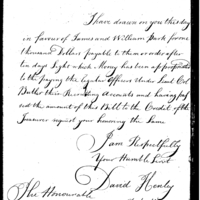 I have drawn on you this day
in favour of James and William Park for one
thousand Dollars payable to them or order after
ten days Sight which Money has been appropriated
to the paying the regular Officers Under Lieut Col
Butler their Accounts and having pass'd
not the amount of this Bill to the Credit of the
Treasurer request your honoring the Same
I am Respectfully
Your Humble Servt
David Henly
The Honourable